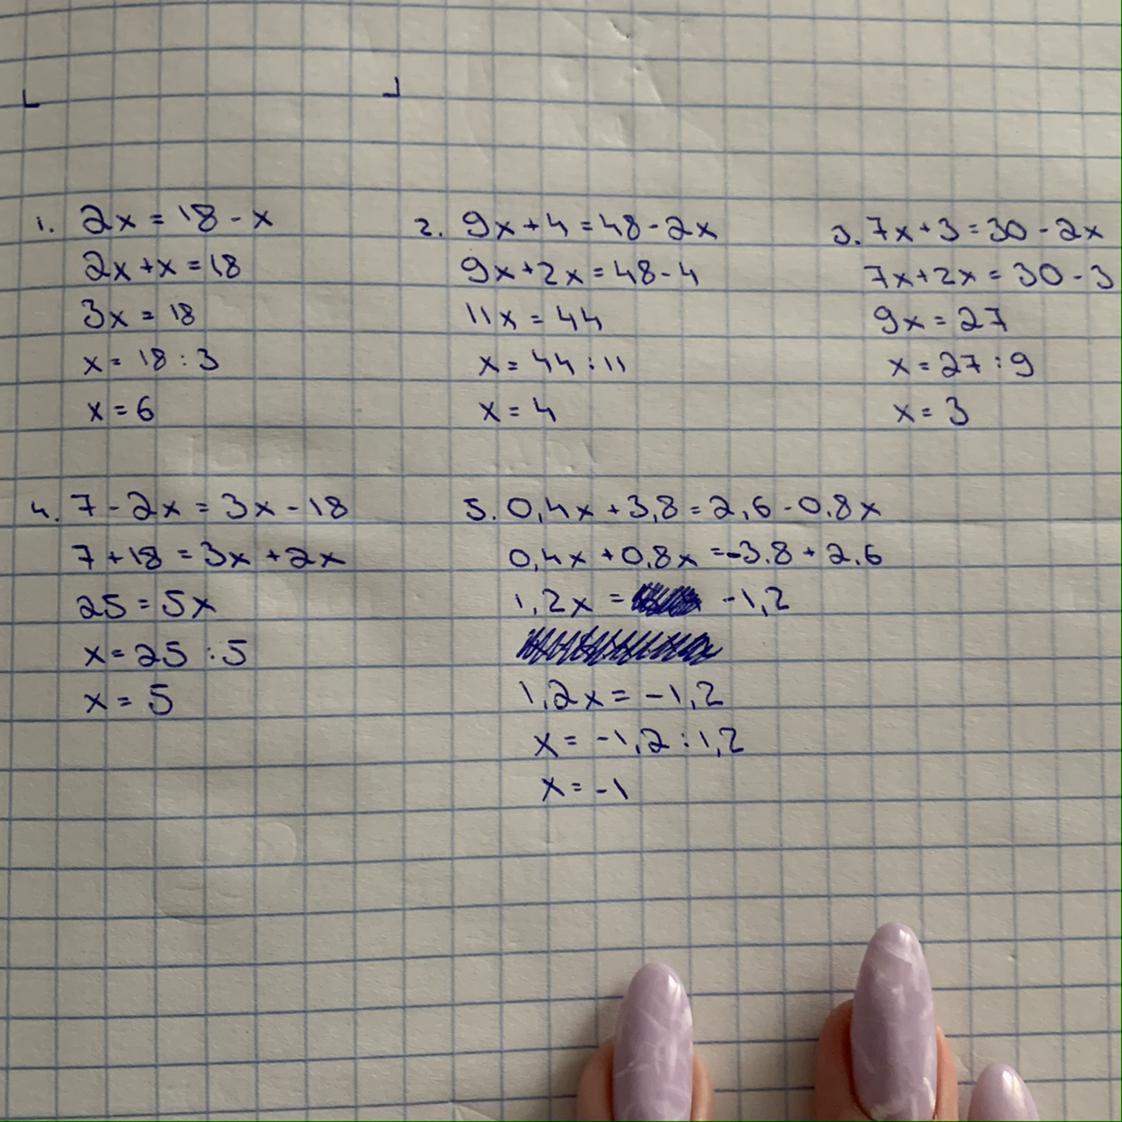 1. 2x = 18 - x
2x + x = 18
3x = 18
x = 18 : 3
x = 6
2. 9x + 4 = 48 - 2x
9x + 2x = 48 - 4
11x = 44
x = 44 : 11
x = 4
3. 7x + 3 = 30 - 2x
7x + 2x = 30 - 3
9x = 27
x = 27 : 9
x = 3
4. 7 - 2x = 3x - 18
7 + 18 = 3x + 2x
25 = 5x
x = 25 : 5
x = 5
5. 0,4x + 3,8 = 2,6 - 0.8x
0,4x + 0,8x = -3.8 + 2.6
1,2x = -1,2
1,2x = -1,2
x = -1,2 : 1,2
x = -1